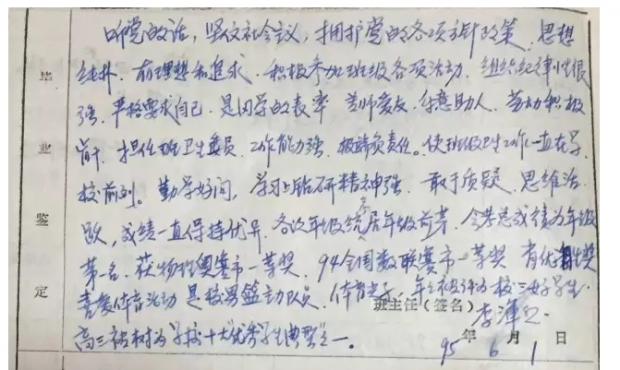 听党的话，坚信社会主义，拥护党的各项方针政策，思想
纯朴，有理想和追求，积极参加班级各项活动，组织纪律性很
强，严格要求自己，是同学的表率，尊师爱友，任意助人，劳动积极
肯干，担任班卫生委员，工作能力强，极端负责任。使班级卫生工作一直在学
校前列。勤学好问，学习上钻研精神强，敢于质疑，思维活
跃，成绩一直保持优异，各次年级统考居年级前茅，会考总成绩为年级
第一名，获物理奥赛市一等奖，94全国数联赛市一等奖
喜爱体育活动，是校男篮主力队员，年年被评为校三好学生，
高三被树为学校十大优秀学生典型之一。
毕业鉴定
班主任(签名)
95年6月1日